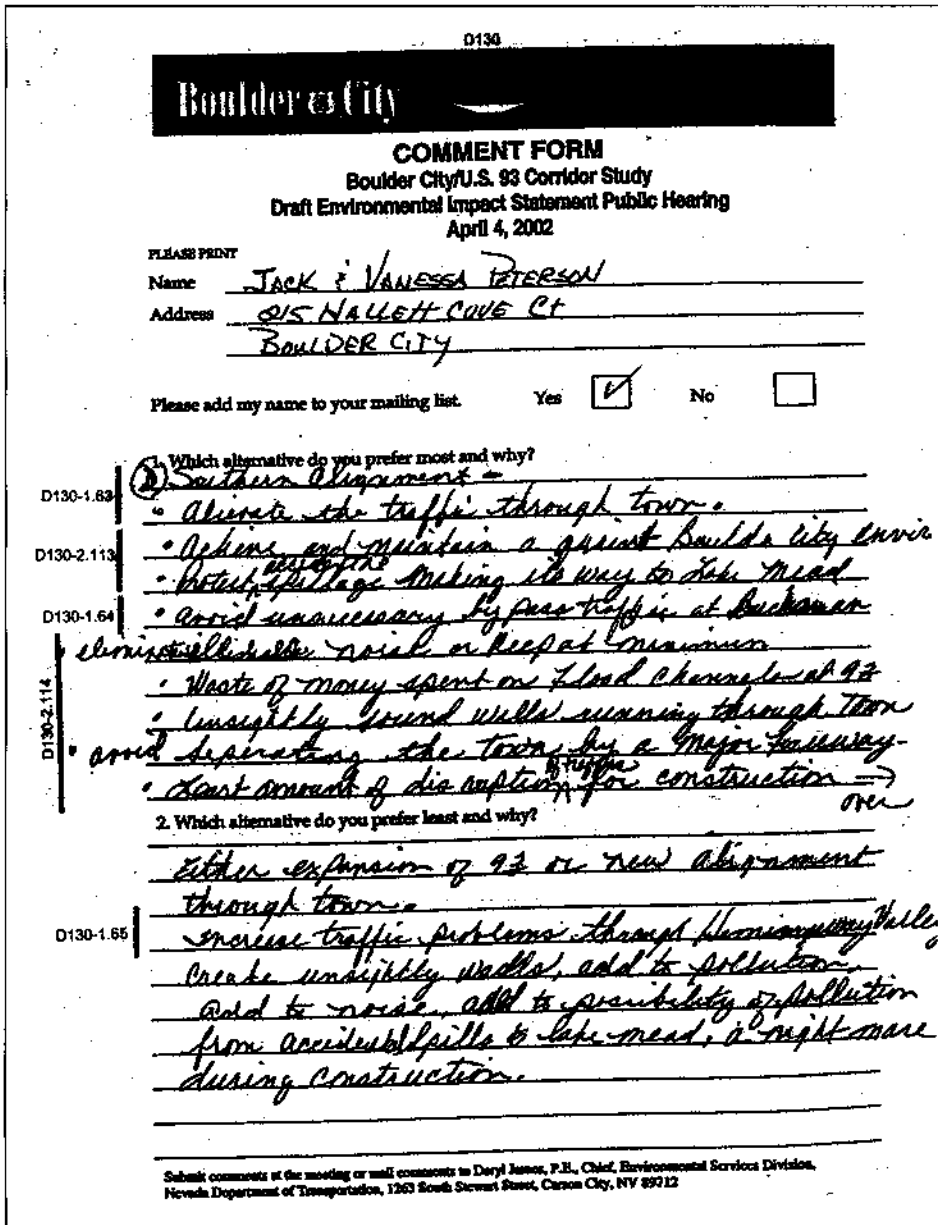 D130
Boulder City
COMMENT FORM
Boulder City/U.S. 93 Corridor Study
Draft Environmental Impact Statement Public Hearing
April 4, 2002
PLEASE PRINT
Name JACK & VANESSA PETERSON
Address 815 HALLETT COVE Ct
BOULDER CITY
Please add my name to your mailing list. Yes ✓ No
1. Which alternative do you prefer most and why?
(D) Southern Alignment -
D130-1.63
• Aliviate the traffic through town.
D130-2.113
• Achieve and maintain a quaint Boulder City envir
• Protest accidental spillage making its way to Lake Mead
D130-1.64
• avoid unnecessary by pass traffic at Buchanan
• eliminate noise or keep at minimum
D130-2.114
• Waste of money spent on flood channels at 93
• Unsightly sound walls running through town
• avoid seperating the town by a major freeway-
• Least amount of disruption for construction → over
2. Which alternative do you prefer least and why?
Either expansion of 93 or new alignment
through town.
D130-1.65
increase traffic problems through Valley
Create unsightly walls, add to pollution.
add to noise, add to possibility of pollution
from accidental spills to lake mead, a night mare
during construction.
Submit comments at the meeting or mail comments to Daryl James, P.E., Chief, Environmental Services Division,
Nevada Department of Transportation, 1263 South Stewart Street, Carson City, NV 89712